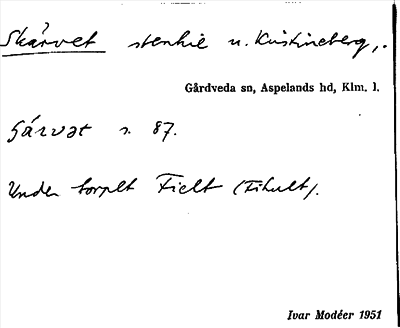 Skárvet stenhie u. Kristineberg,.
Gårdveda sn, Aspelands hd, Klm. l.
Sárvət s. 87.
Under torplt Fielt (Fihult).
Ivar Modéer 1951